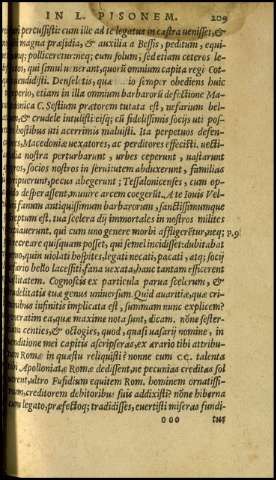 IN L. PISONEM. 209
percussisti cum ille ad te legatus in castra venisset, &
magna præsidia, & auxilia a Bessis, peditum, equi-
polliceretur: neq; eum solum, sed etiam ceteros le-
quorū omnium capita regi Cot-
Denseletis, quæ semper obediens huic
imperio, etiam in illa omnium barbarorū defectione Ma-
C. Sestium prætorem tutata est, nefarium bel-
& crudele intulisti: eisq; cū fidelissimis socijs uti pos-
hostibus uti acerrimis maluisti. Ita perpetuos defen-
Macedoniæ uexatores, ac perditores effecisti. uecti-
nostra perturbarunt, urbes ceperunt, uastarunt
socios nostros in seruitutem abduxerunt, familias
pecus abegerunt: Tessalonicenses, cum op-
desperassent, munire arcem coegerūt. A te Iouis Vel-
fanum antiquissimum barbarorum, sanctissimumque
est. tua scelera dij immortales in nostros milites
qui cum uno genere morbi affligerētur, neq; p.9
recreare quisquam posset, qui semel incidisset: dubitabat
quin uiolati hospites, legati necati, pacati, atq; socij
bello lacessiti, fana uexata, hanc tantam efficerent
Cognoscis ex particula parua scelerum, &
tua genus uniuersum. Quid auaritiæ, quæ cri-
infinitis implicata est, summam nunc explicem?
ea, quæ maxime nota sunt, dicam. nōne sester-
centies, & octogies, quod, quasi uasarij nomine, in
uenditione mei capitis ascripseras, ex ærario tibi attribu-
Romæ in quæstu reliquisti? nonne cum CC. talenta
Apolloniatæ Romæ dedissent, ne pecunias creditas sol
ultro Fufidium equitem Rom. hominem ornatissi-
creditorem debitoribus suis addixisti? nōne hiberna
legato, præfectoq; tradidisses, euertisti miseras fundi-
ooo tus